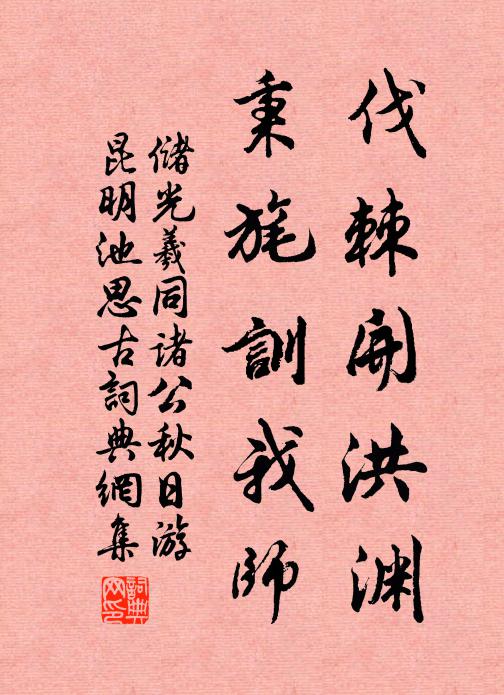 伐棘開洪渊
秉旄訓我師
儲光羲同諸公秋日游
昆明池思古詞典網集
詞典网印